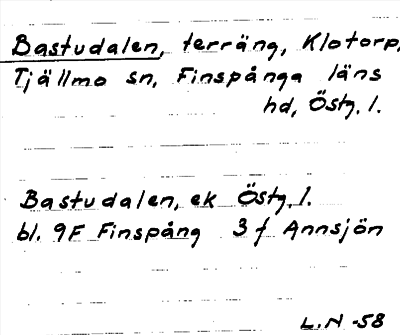 Bastudalen, terräng, Klotorp,
Tjällmo sn, Finspånga läns
hd, Östg. l.
Bastudalen, ek Östg. l.
bl. 9F Finspång 3 f Annsjön
L.N -58